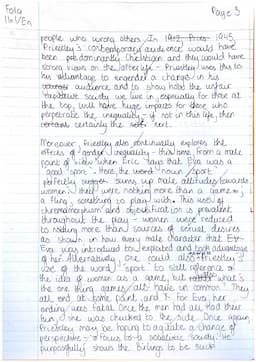 Fola
11x1/En
Page 3
people who wrong others. In 1912, Pries 1945,
Priestley's contemporary audience would have
been predominantly Christian and they would have
strong views on the afterlife - Priestley uses this to
his advantage to engender a change in his
audience and to show how the unfair
capitalist society we live in, especially for those at
the top, will have huge impacts for those who
perpetrate the inequality - if not in this life, then
certainly the next.
Moreover, Priestley also continually explores the
effects of gender inequality - this time, from a male
point of view when Eric says that Eva was a
"good sport". Here, the word/noun "sport"
perfectly sums up male attitudes towards
women - they were nothing more than a game,
a fling, something to play with. This use of
and objectification is prevalent
throughout the play - women were reduced
to nothing more than sources of sexual desires
as shown in how every male character that
Eva was introduced to exploited and took advantage
of her. Alternatively, one could also Priestley's
use of the word "sport" to still reference
the idea of women as a game, but what's
the one thing games all have in common? They
all end at some point and For Eva, her
ending was fatal. Once the men had had their
fun, she was chucked to the side. Once again,
Priestley may be hoping to agitate a change of
perspective - focus to a socialistic society. He
purposefully shows the Birlings to be such